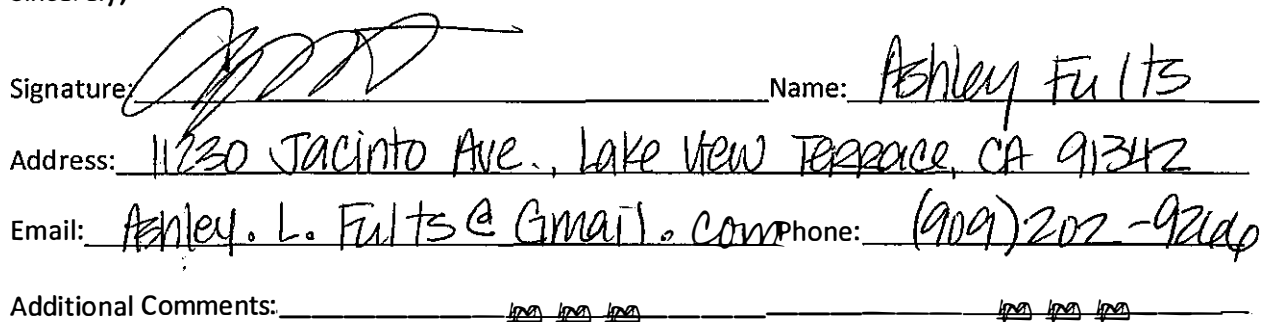 Signature: Name: Ashley Fults
Address: 11230 Jacinto Ave., Lake View Terrace, CA 91342
Email: Ashley.L.Fults@Gmail.com Phone: (909)202-9266
Additional Comments: